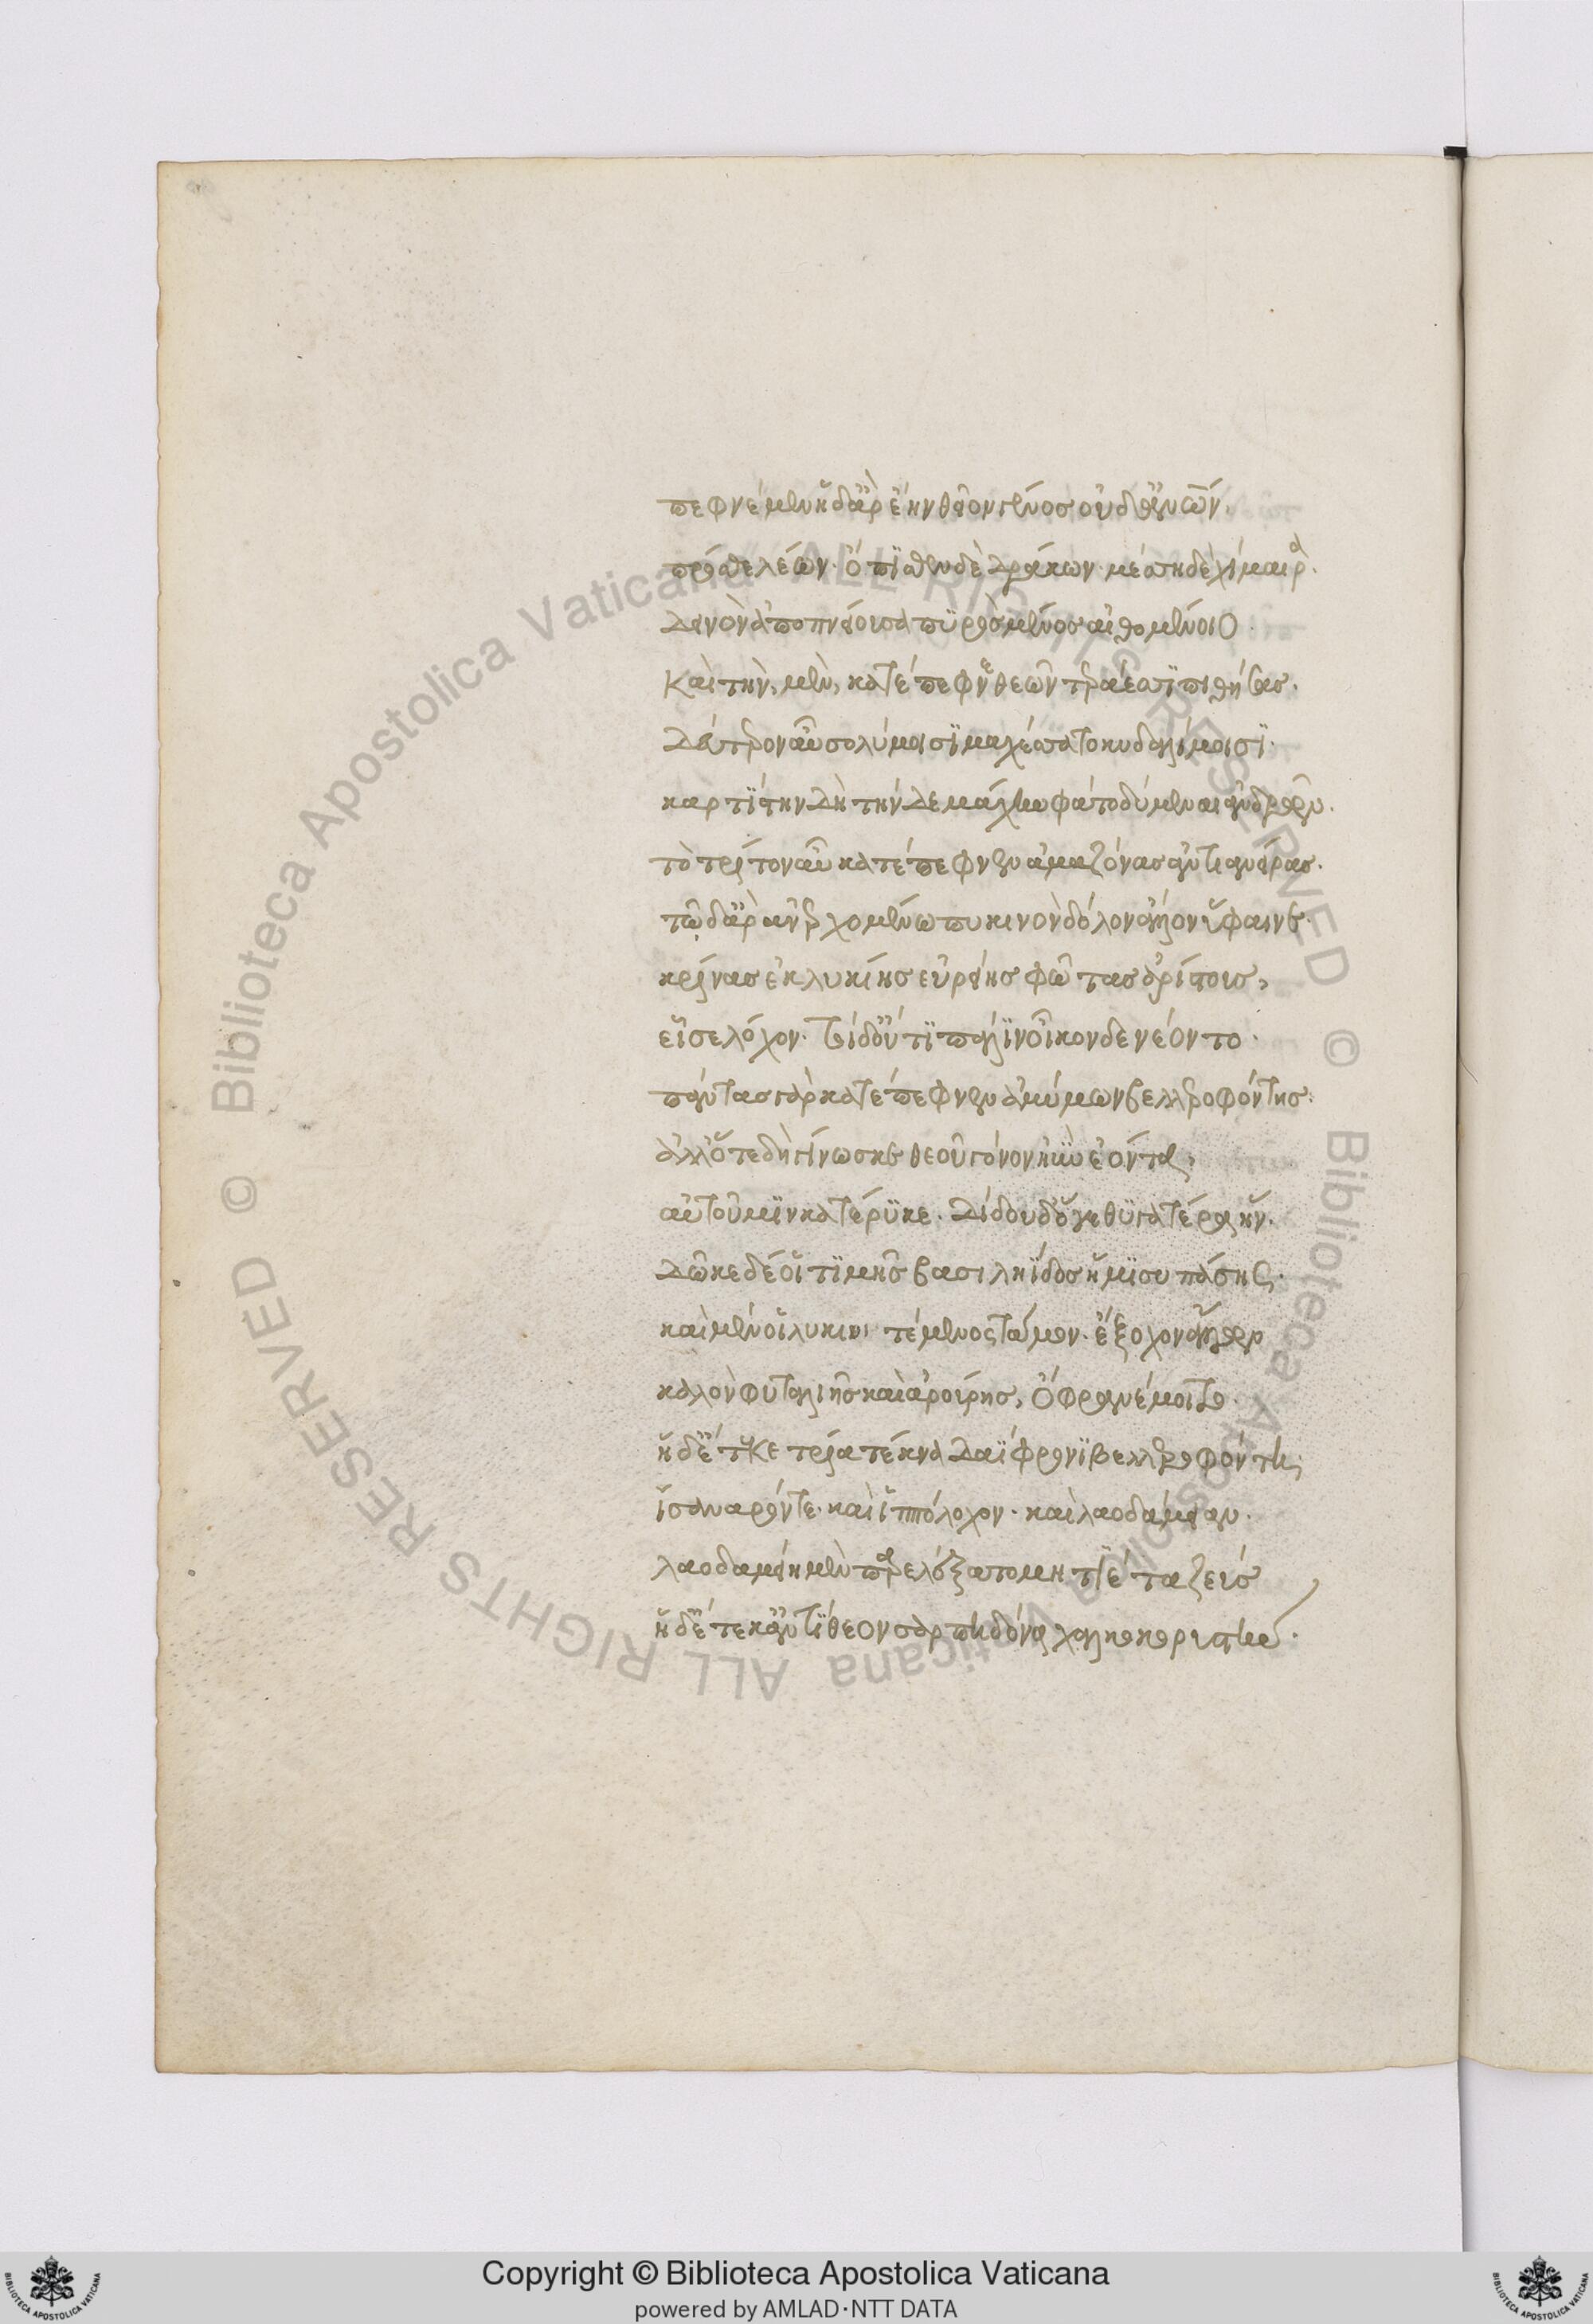 πεφνέμεν· ἣ δ' ἄρ' ἔην θεῖον γένος οὐδ' ἀνθρώπων.
πρόσθε λέων· ὄπιθεν δὲ δράκων· μέσση δὲ χίμαιρα.
δεινὸν ἀποπνείουσα πυρὸς μένος αἰθομένοιο.
Καὶ τὴν μὲν κατέπεφνε θεῶν τεράεσσι πιθήσας.
δεύτερον αὖ σολύμοισι μαχέσσατο κυδαλίμοισι.
καρτίστην δὴ τήν δε μάχην φάτο δύμεναι ἀνδρῶν.
τὸ τρίτον αὖ κατέπεφνεν ἀμαζόνας ἀντιανείρας.
τῶ δ' ἄρ' ἀνερχομένω πυκινὸν δόλον ἄλλον ὕφαινε.
κρίνας ἐκ λυκίης εὐρείης φῶτας ἀρίστους,
εἷσε λόχον. τοὶ δ' οὔτι πάλιν οἶκον δε νέοντο.
πάντας γὰρ κατέπεφνεν ἀμύμων βελλεροφόντης.
ἀλλ' ὅτε δὴ γίνωσκε θεοῦ γόνον ἠῢν ἐόντα,
αὐτοῦ μιν κατέρυκε. δίδου δ' ὅγε θυγατέρα ἥν.
δῶκε δέ οἱ τιμῆς βασιληΐδος ἥμισυ πάσης.
καὶ μέν οἱ λύκιοι τέμενος τάμον ἔξοχον ἄλλων
καλὸν φυταλιῆς καὶ ἀρούρης, ὄφρα νέμοιτο.
ἣ δ' ἔτεκε τρία τέκνα δαΐφρονι βελλεροφόντη,
ἴσανδρόν τε· καὶ ἱππόλοχον· καὶ λαοδάμειαν.
λαοδαμείη μὲν παρελέξατο μητίετα ζεύς
ἣ δ' ἔτεκ' ἀντίθεον σαρπηδόνα χαλκοκορυστήν.
Copyright © Biblioteca Apostolica Vaticana
powered by AMLAD·NTT DATA